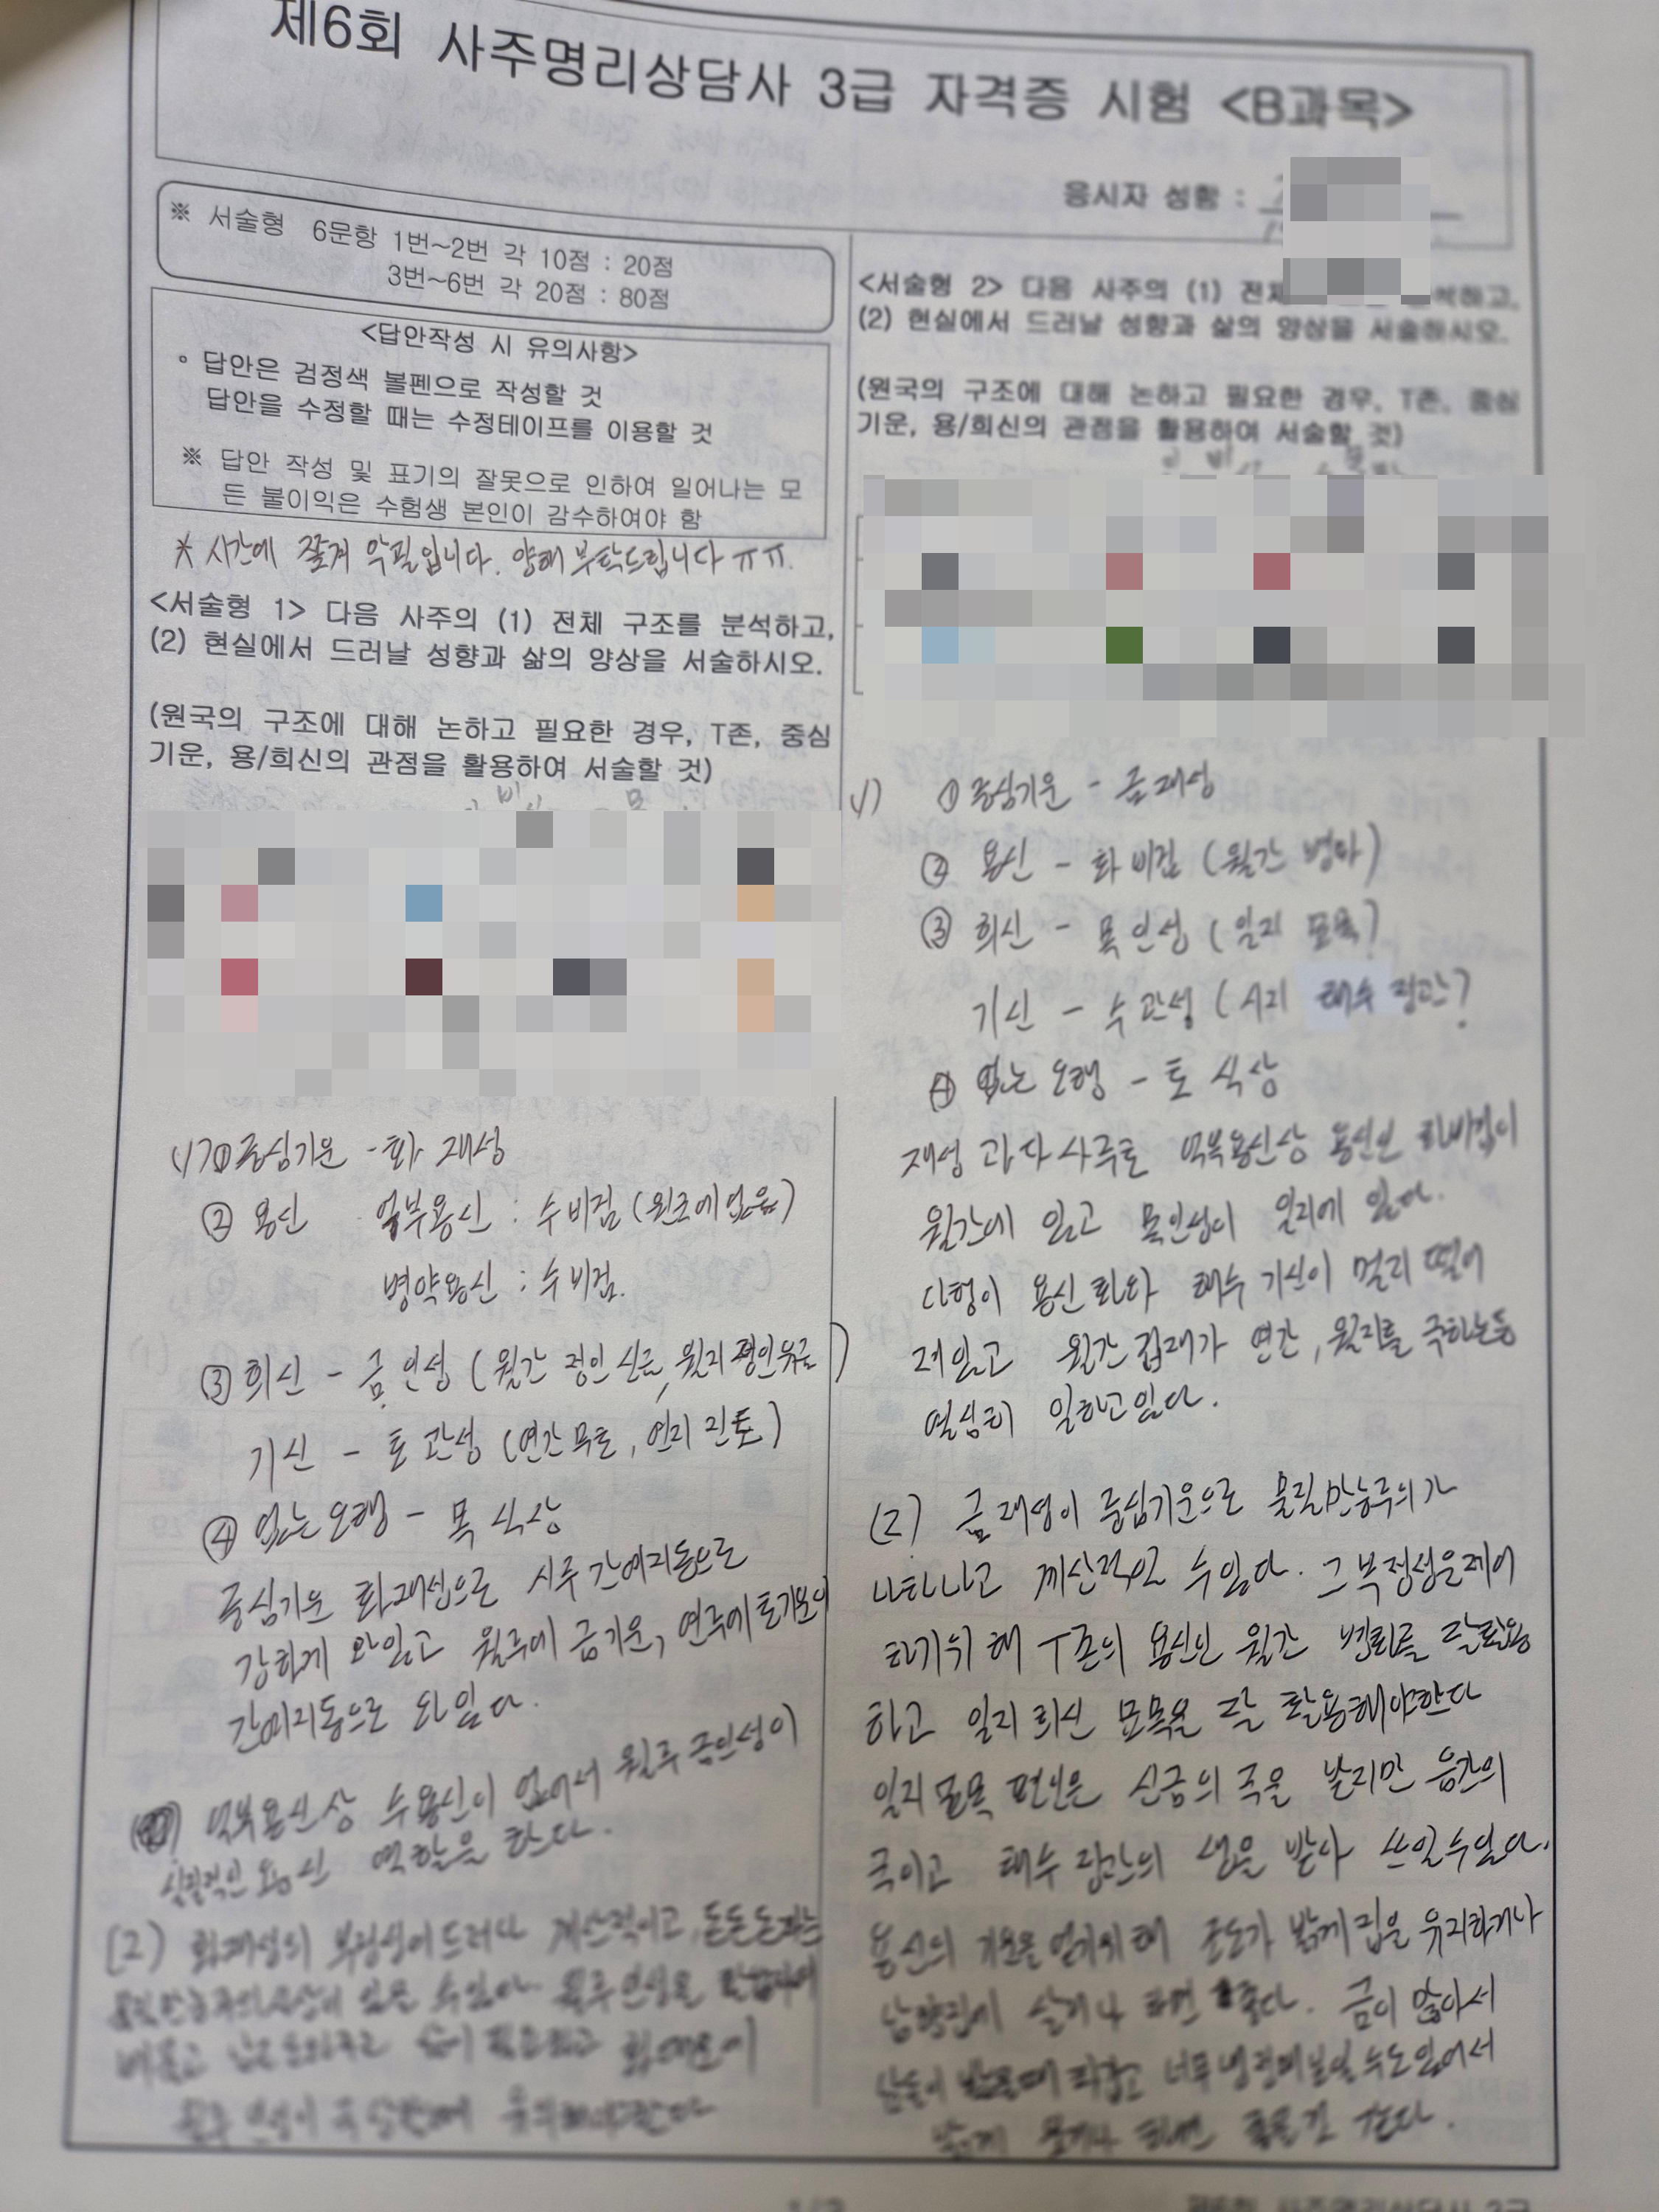 제6회 사주명리상담사 3급 자격증 시험 <B과목>
응시자 성함 :
※ 서술형 6문항 1번~2번 각 10점 : 20점
3번~6번 각 20점 : 80점
<답안작성 시 유의사항>
◦ 답안은 검정색 볼펜으로 작성할 것
답안을 수정할 때는 수정테이프를 이용할 것
※ 답안 작성 및 표기의 잘못으로 인하여 일어나는 모
든 불이익은 수험생 본인이 감수하여야 함
* 시간에 쫓겨 악필입니다. 양해 부탁드립니다 ㅠㅠ.
<서술형 1> 다음 사주의 (1) 전체 구조를 분석하고,
(2) 현실에서 드러날 성향과 삶의 양상을 서술하시오.
(원국의 구조에 대해 논하고 필요한 경우, T존, 중심
기운, 용/희신의 관점을 활용하여 서술할 것)
① 중심기운 - 화 재성
② 용신 억부용신 : 수비겁 (원국에 없음)
병약용신 : 수비겁.
③ 희신 - 금 인성 (월간 정인 신금, 월지 정인 유금)
기신 - 토 관성 (연간 무토, 연지 진토)
④ 없는 오행 - 목 식상
중심기운 화재성으로 시주 간여지동으로
강하게 와있고 월주에 금기운, 연주에 토기운이
간여지동으로 와 있다.
억부용신상 수용신이 없어서 월주 금인성이
실질적인 용신 역할을 한다.
(2) 화재성의 부정성이 드러나 계산적이고 돈돈돈하는
월주 인성을
<서술형 2> 다음 사주의 (1) 전체 석하고,
(2) 현실에서 드러날 성향과 삶의 양상을 서술하시오.
(원국의 구조에 대해 논하고 필요한 경우, T존, 중심
기운, 용/희신의 관점을 활용하여 서술할 것)
1) ① 중심기운 - 금 재성
② 용신 - 화 비겁 (월간 병화)
③ 희신 - 목 인성 (일지 묘목)
기신 - 수 관성 (시지 해수 정관)
④ 없는 오행 - 토 식상
재성 과다 사주로 억부용신상 용신인 화비겁이
월간에 있고 목인성이 일지에 있다.
다행히 용신 화와 해수 기신이 멀리 떨어
져있고 월간 겁재가 연간, 월지를 극하는등
열심히 일하고 있다.
(2) 금 재성이 중심기운으로 물질만능주의가
나타나고 계산적일 수 있다. 그 부정성을 제어
하기위해 T존의 용신인 월간 병화를 잘 활용
하고 일지 희신 묘목을 잘 활용해야한다
일지 묘목 편인은 신금의 극을 받지만 음간의
극이고 해수 정관의 생을 받아 쓰일 수 있다.
용신의 기운을 얻기위해 조도가 밝게 집을 유지하거나
남향집에 살거나 하면 좋다. 금이 많아서